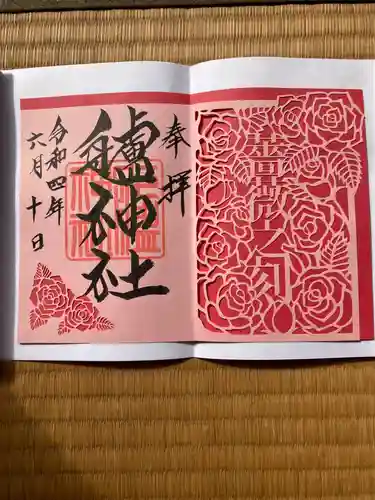 薔薇之刻
奉拝
艫神社
令和四年
六月十日